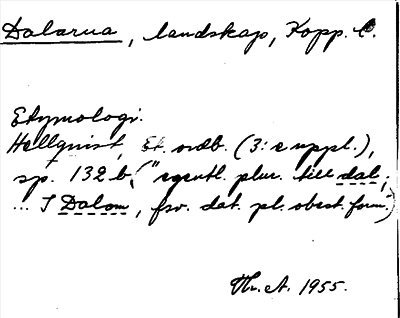 Dalarna, landskap, Kopp. l.
Etymologi.
Hellquist, Et. ordb. (3:e uppl.),
sp. 132 b, ("egentl. plur. till dal;
... I Dalom, fsv. dat. pl. obest. form.")
Hr. A. 1955.